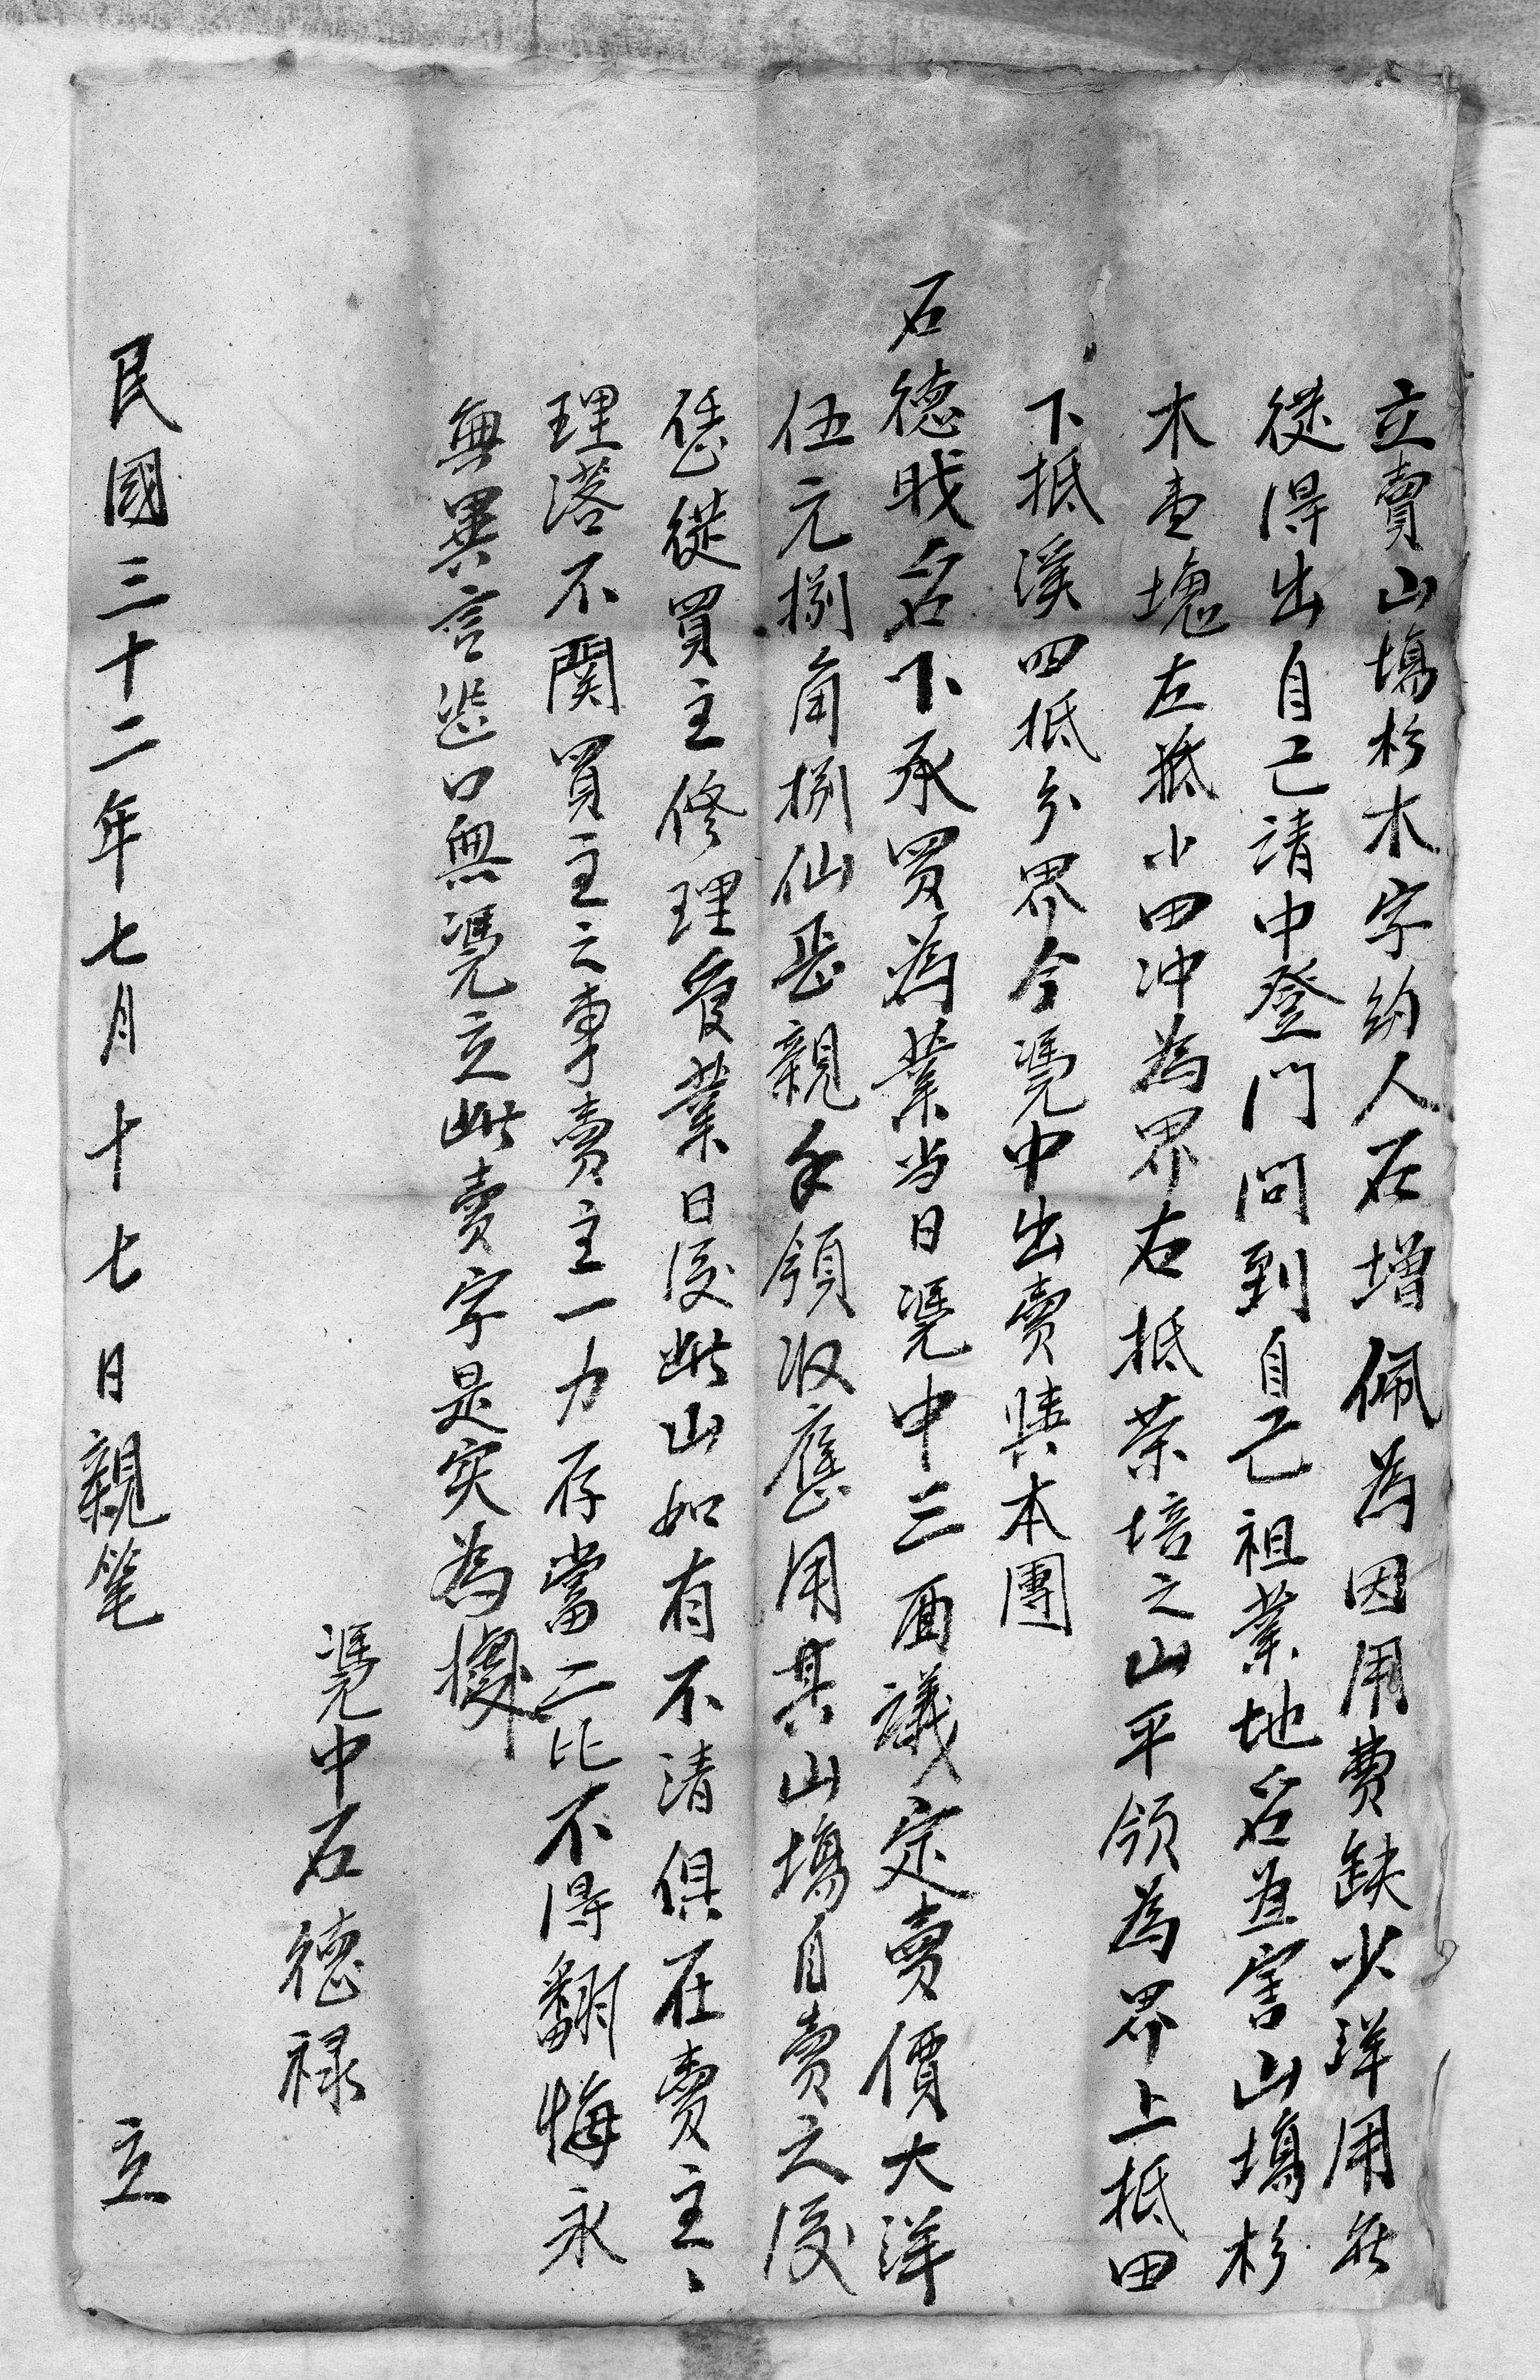 立賣山塲杉木字約人石增佩為因用費缺少洋用無
從得出自己請中登門問到自己祖業地名宜害山塲杉
木壹塊左抵小田冲為界右抵荣培之山平领為界上抵田
下抵溪四抵分界今凴中出賣與本團
石德戝名下承買為業当日凴中三面議定賣價大洋
伍元捌角捌仙即親手領收應用其山塲自賣之後
恁從買主修理管業日後此山如有不清俱在賣主、
理落不関買主之事賣主一力存當二比不得翻悔永
無異言恐口無凴立此賣字是实為據
凴中石德禄
民國三十二年七月十七日親笔 立